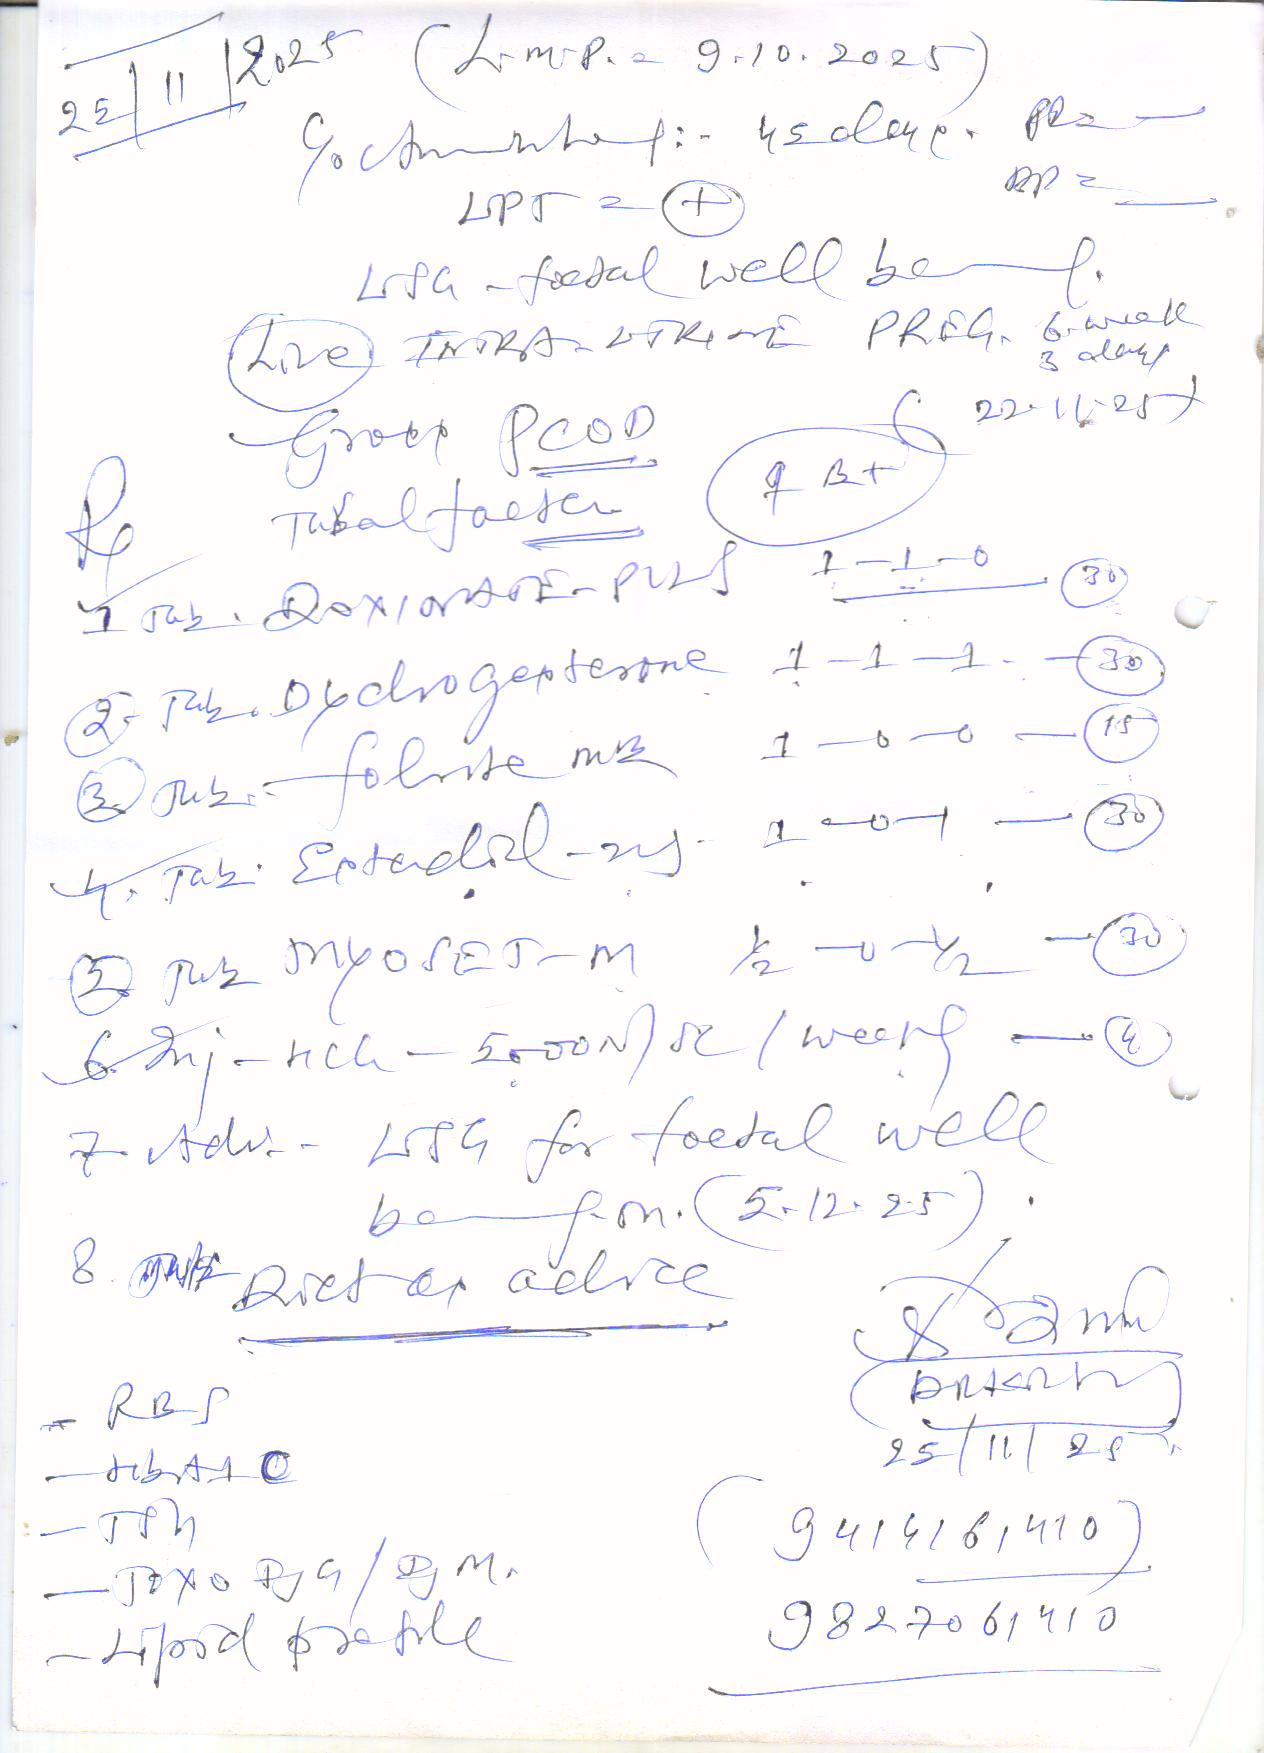 25/11/2025 (L.M.P. = 9.10.2025)
45 days. PR =
UPT = (+) BP =
USG - foetal well being.
Live INTRA-UTRINE PREG. 6 week
3 days
(22.11.25)
Gross PCOD
Tubal factor B+
Rx
1 Tab. DOXINATE-PLUS 1-1-0 30
2. Tab. Dydrogesterone 1-1-1. - 30
3. Tab. - folvite MB 1-0-0 - 15
4. Tab. Estradiol - 1-0-1 - 30
5. Tab MYOSET-M 1/2-0-1/2 - 30
6. Inj - HCG - 5000 / SC / weekly - 4
7. Adv. - USG for foetal well
being on. (5.12.25).
8. Diet as advice
25/11/25.
- RBS
- HbA1C
- TSH
- TOXO IgG / IgM.
- Lipid profile
(9414161410)
9827061410